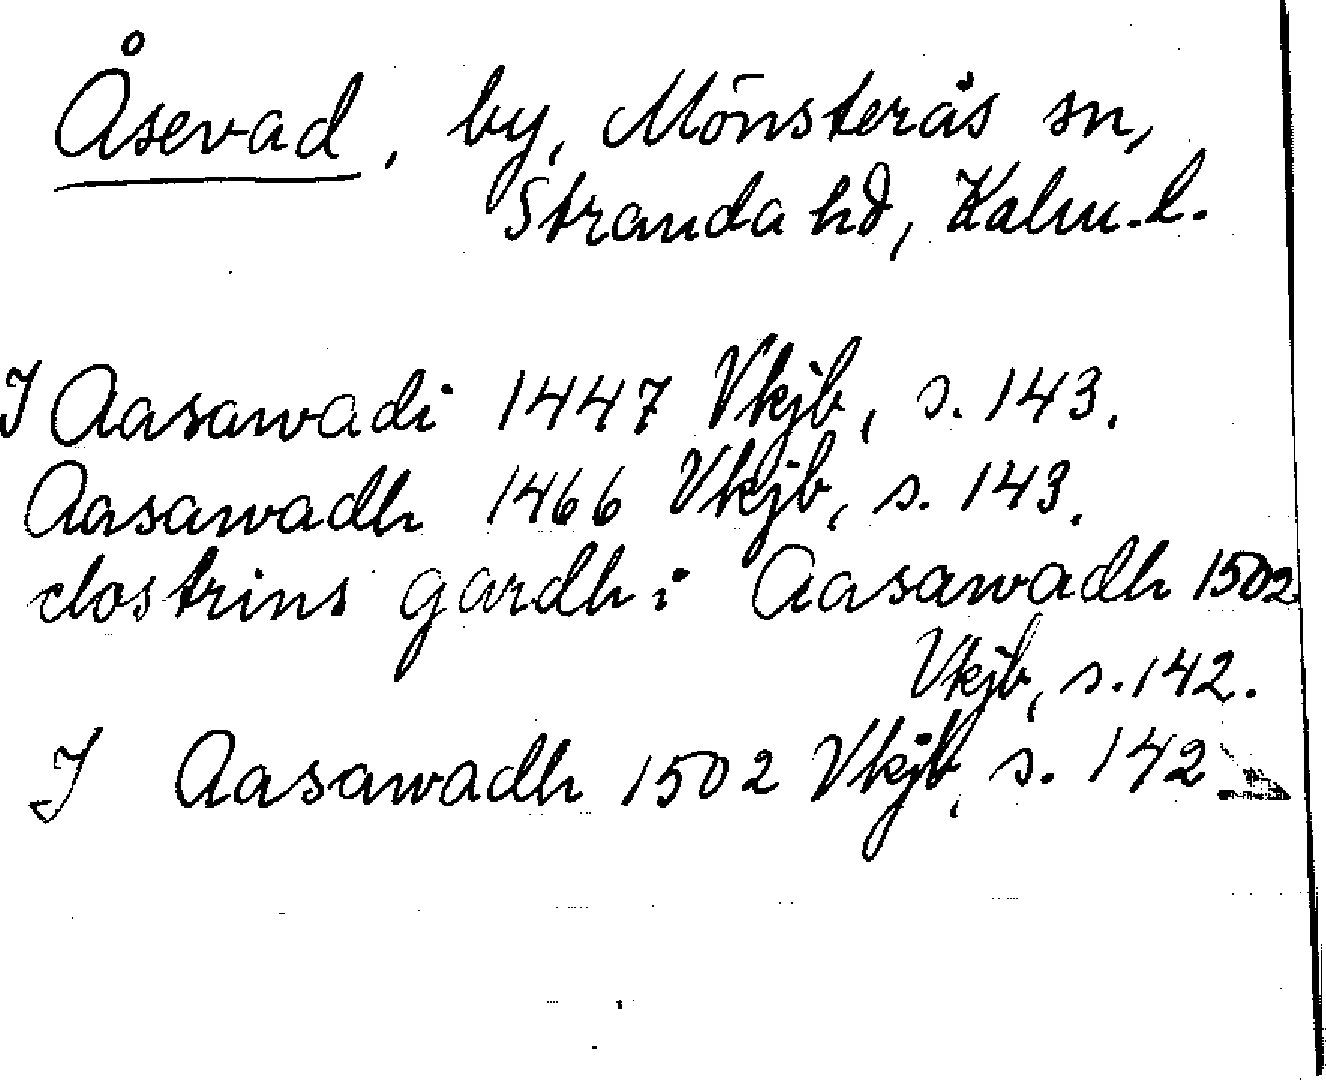 Åsevad, by, Mönsterås sn,
Stranda hd, Kalm. l.
I Aasawadi 1447 Vkjb, s. 143.
Aasawadh 1466 Vkjb, s. 143.
clostrins gardh i Aasawadh 1502
Vkjb, s. 142.
I Aasawadh 1502 Vkjb, s. 142